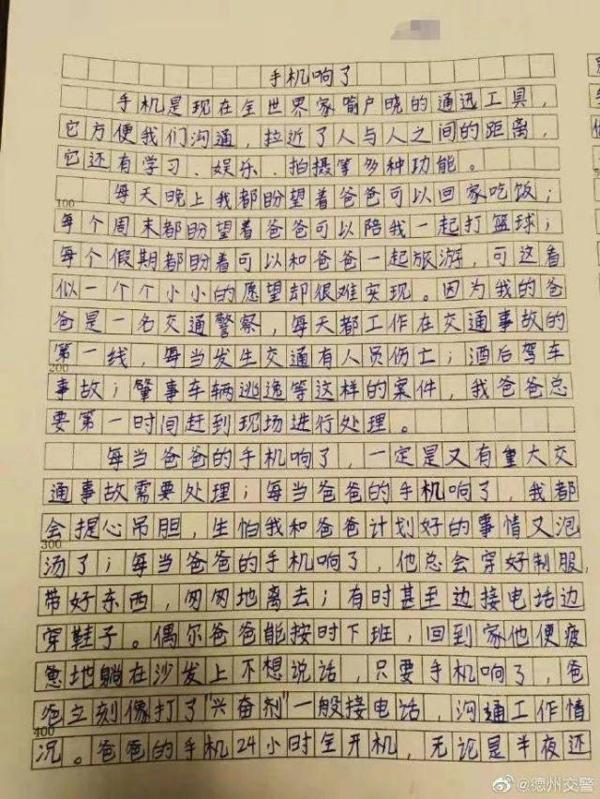 手机响了
手机是现在全世界家喻户晓的通迅工具，
它方便我们沟通，拉近了人与人之间的距离，
它还有学习、娱乐、拍摄等多种功能。
每天晚上我都盼望着爸爸可以回家吃饭；
100
每个周末都盼望着爸爸可以陪我一起打篮球；
每个假期都盼着可以和爸爸一起旅游，可这看
似一个个小小的愿望却很难实现。因为我的爸
爸是一名交通警察，每天都工作在交通事故的
第一线，每当发生交通有人员伤亡；酒后驾车
200
事故；肇事车辆逃逸等这样的案件，我爸爸总
要第一时间赶到现场进行处理。
每当爸爸的手机响了，一定是又有重大交
通事故需要处理；每当爸爸的手机响了，我都
会提心吊胆，生怕我和爸爸计划好的事情又泡
300
汤了；每当爸爸的手机响了，他总会穿好制服，
带好东西，匆匆地离去；有时甚至边接电话边
穿鞋子。偶尔爸爸能按时下班，回到家他便疲
惫地躺在沙发上不想说话，只要手机响了，爸
爸立刻像打了“兴奋剂”一般接电话，沟通工作情
400
况。爸爸的手机24小时全开机，无论是半夜还
@德州交警